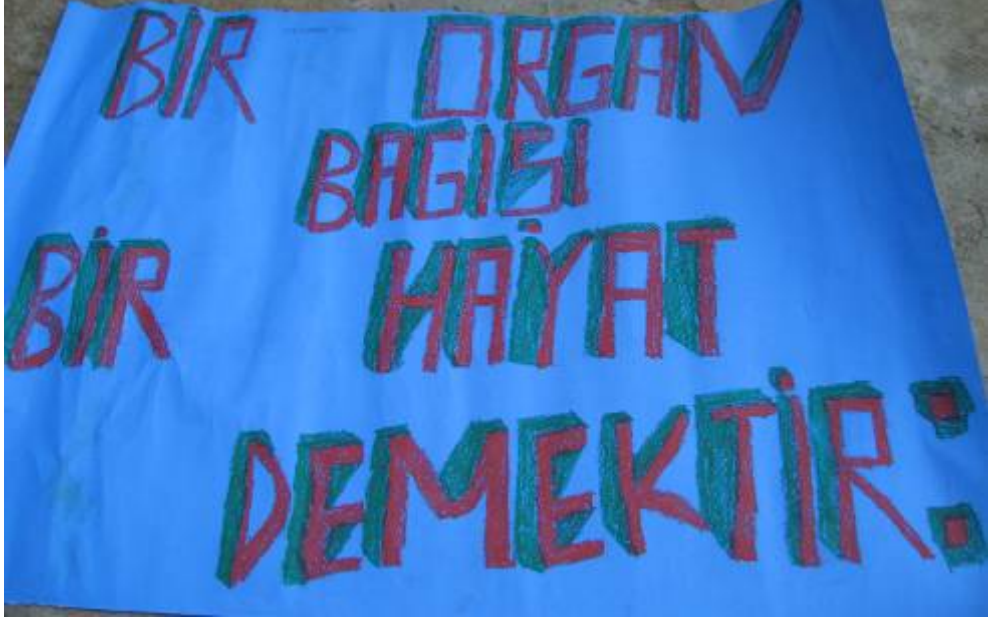 BİR ORGAN
BAGISI
BİR HAYAT
DEMEKTİR: